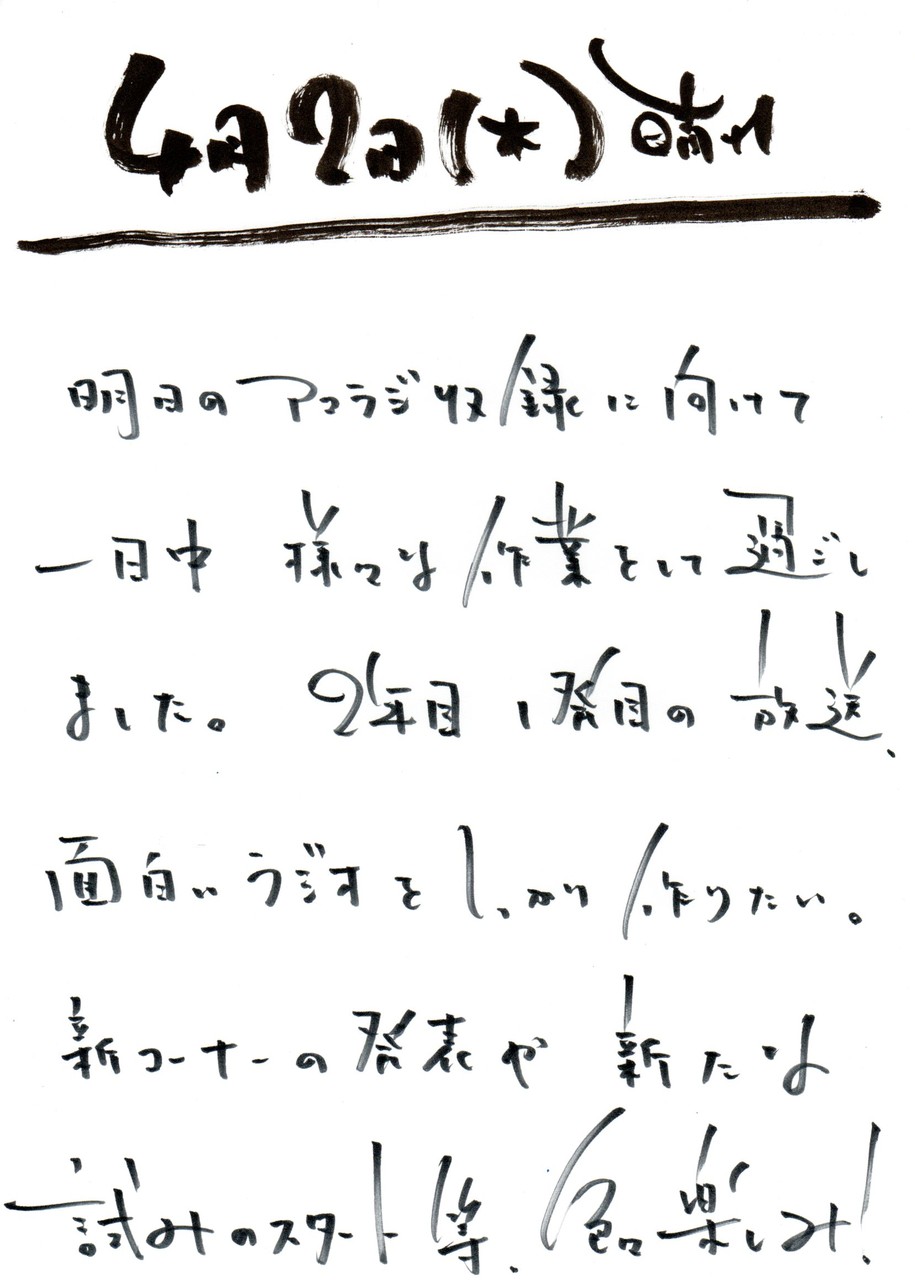 4月2日(木) 晴れ
明日のアコラジ収録に向けて
一日中 様々な作業をして過ごし
ました。 2年目1発目の放送、
面白いラジオをしっかり作りたい。
新コーナーの発表や 新たな
試みのスタート等、色々楽しみ!